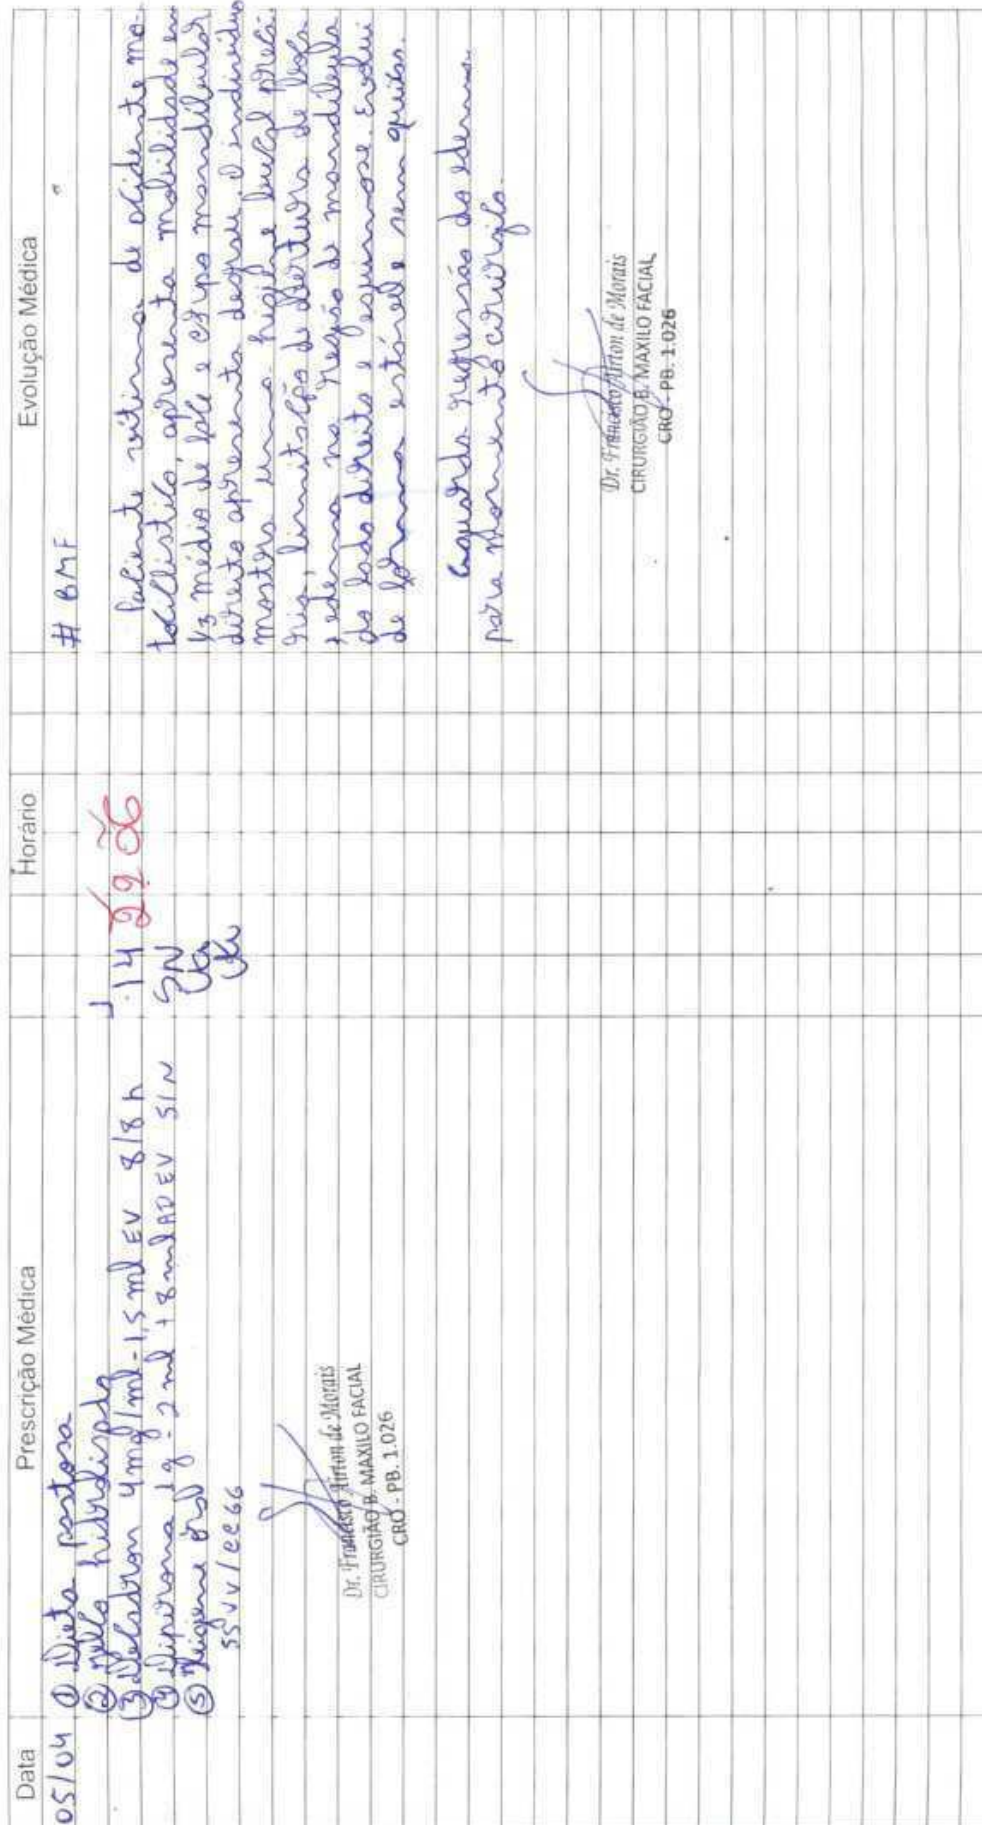 Data
Prescrição Médica
Horário
Evolução Médica
05/04
① Dieta pastosa
② Jelco hidrolisado
③ Decadron 4mg/ml - 1,5 ml EV 8/8 h
14 22 06
④ Dipirona 1g - 2 ml + 8 ml AD EV S/N
SN
⑤ Higiene oral
SSVV/CCGG
Dr. Francisco Airton de Morais
CIRURGIÃO B. MAXILO FACIAL
CRO - PB. 1.026
# BMF
Paciente vítima de acidente mo-
tociclistico, apresenta mobilidade em
1/3 médio de face e corpo mandibular
direito apresenta degrau, o individuo
mostra uma higiene bucal precá-
ria, limitação de abertura de boca
, edema na região de mandíbula
do lado direito e equimose. Evolui
de forma estável e sem queixas.
Aguarda regressão do edema
para momento cirúrgico.
Dr. Francisco Airton de Morais
CIRURGIÃO B. MAXILO FACIAL
CRO - PB. 1.026